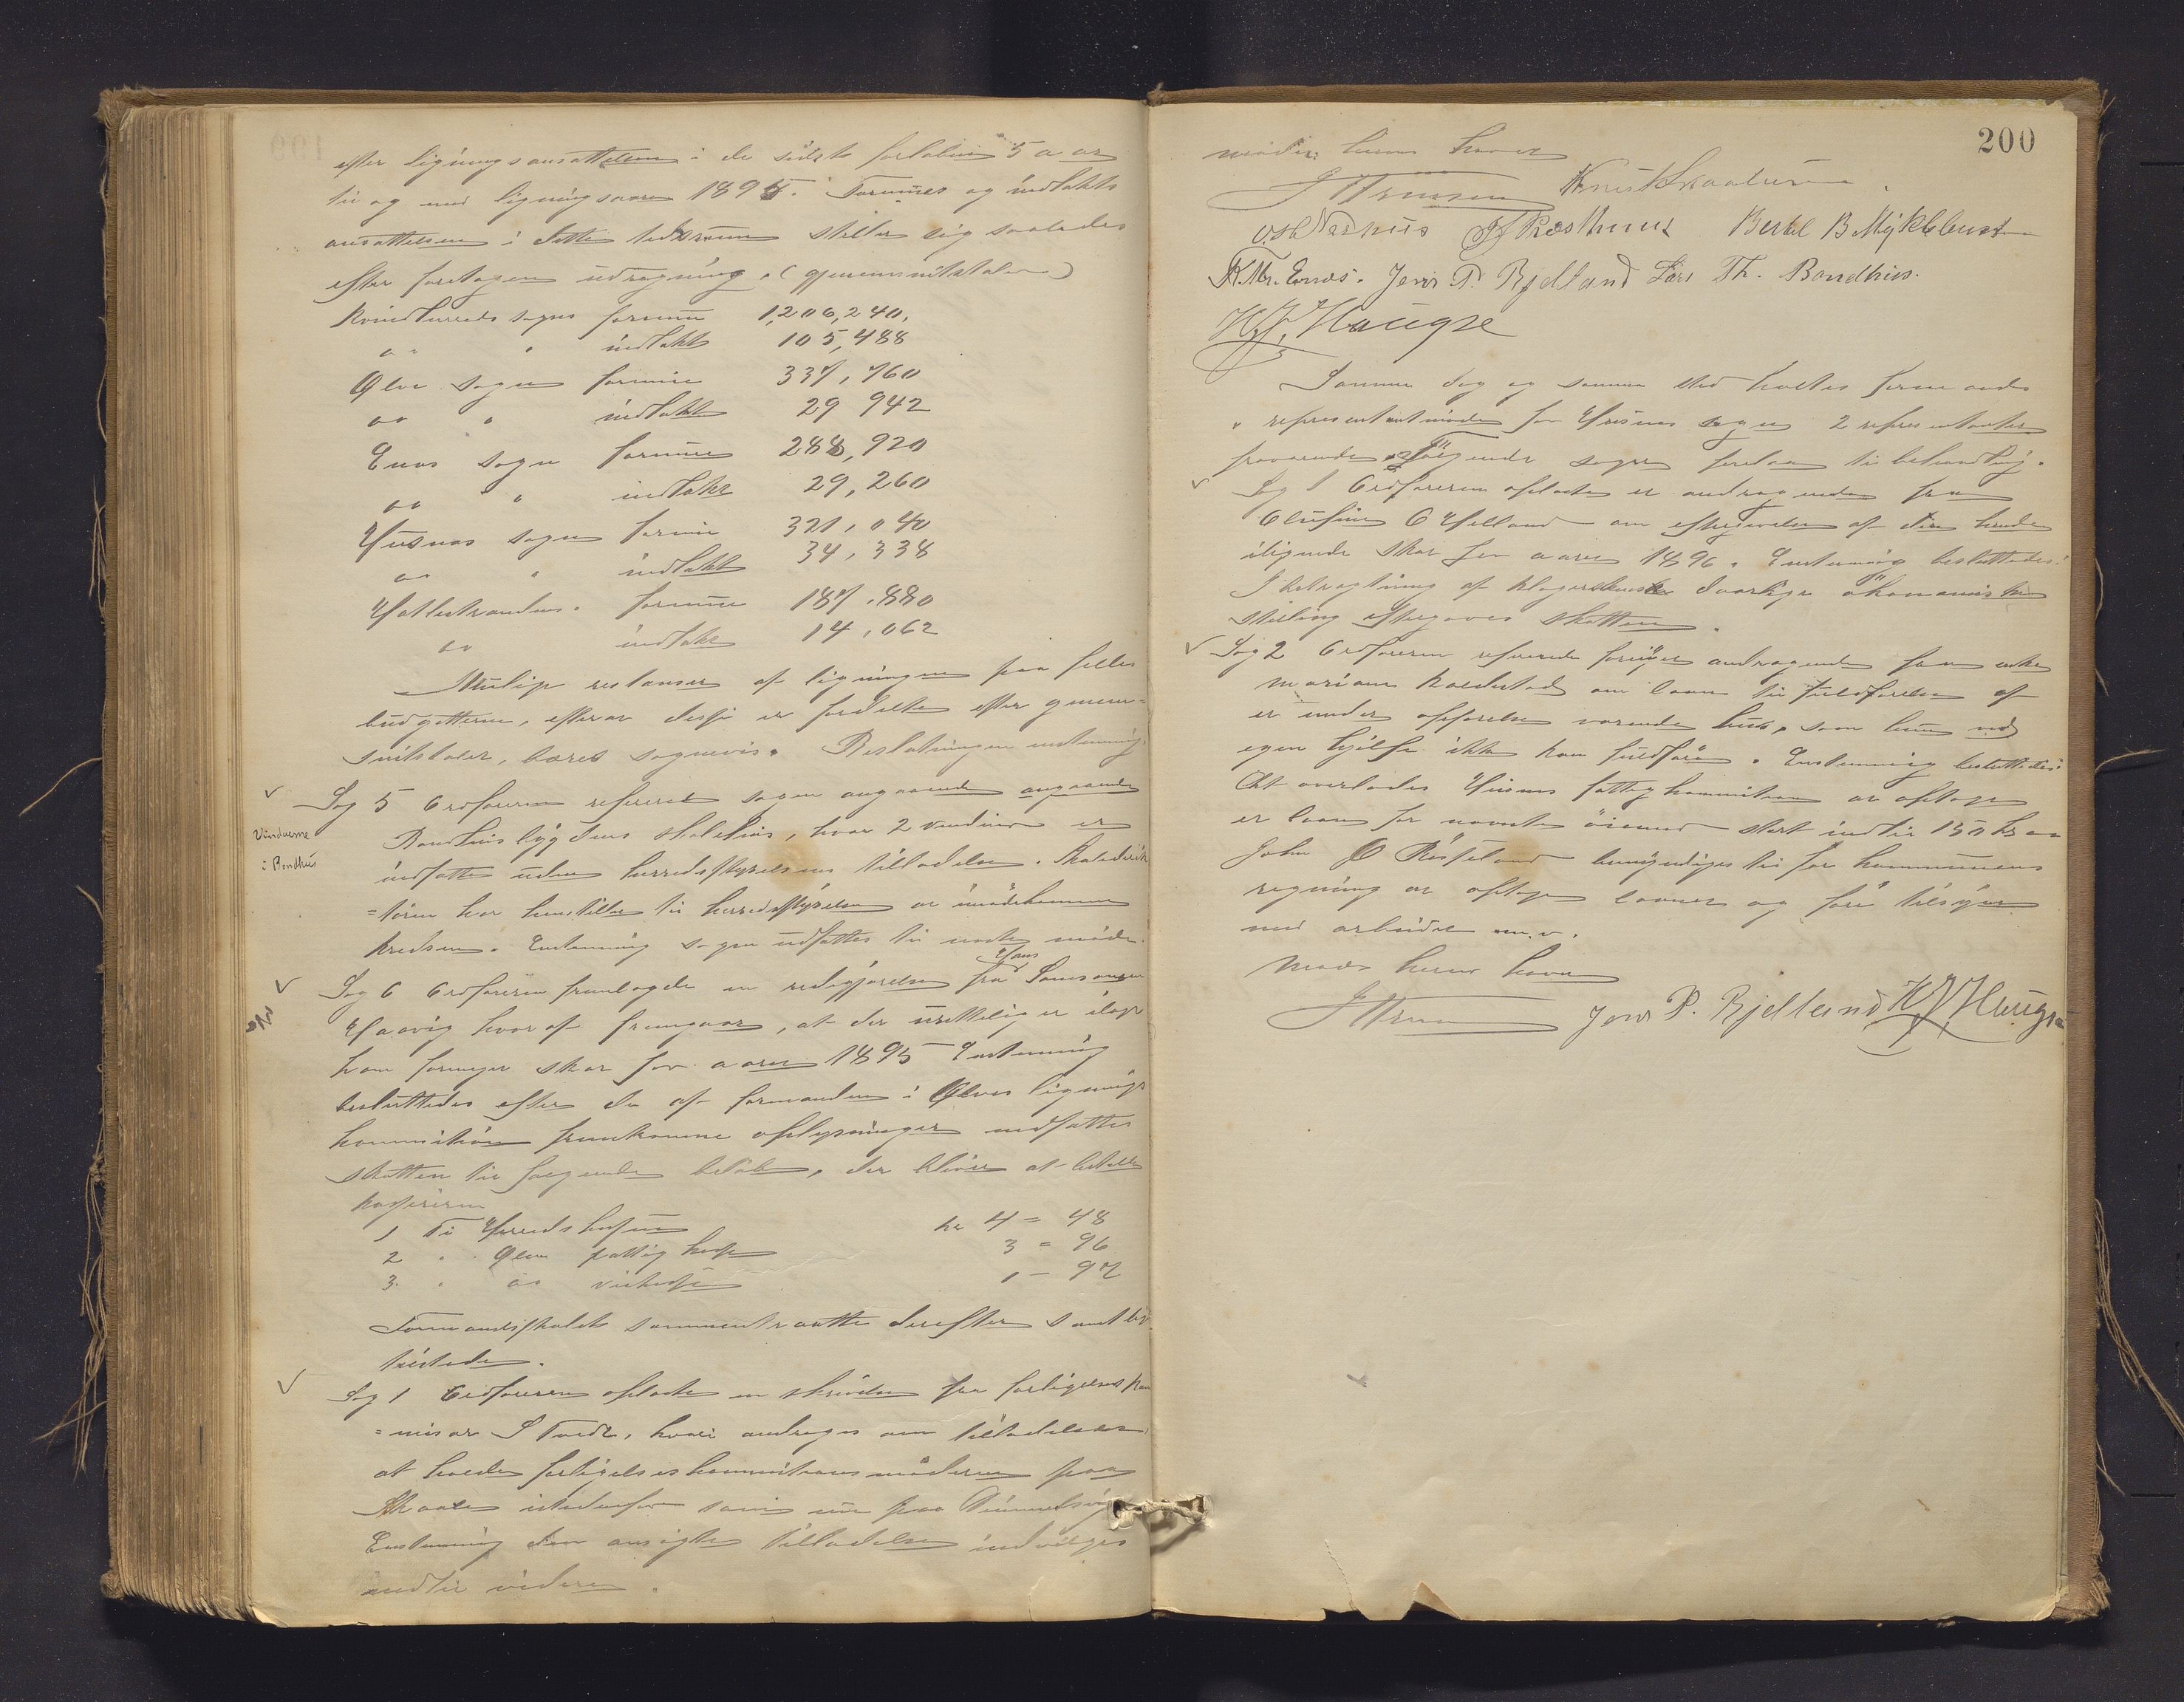 efter ligningsansættelsen i de sidste forløbne 5 aar
til og med ligningsaaret 1895. Formues og indtækts
ansættelsen i dette tidsrum stiller sig saaledes
efter foretagen udregning. (gjennemsnitstal)
Kvindherreds sogns formue 1,206,240,
do " indtækt 105,488
Ølve sogn formue 337,760
do " indtækt 29 942
Enæs sogn formue 288,920
do " indtækt 29,260
Husnæs sogn formue 321,040
do " indtækt 34,338
Hatlestrandens formue 187.880
do indtækt 14,062
Mulige restanser af ligningen paa felles
budgetterne, efterat disse er fordelte efter gjennem-
snitstalet, bæres sognevis. Beslutningen enstemmig.
Sag 5 Ordføreren refererede sagen angaaende
Bondhusbygdens skolehus, hvor 2 vinduer er
Vinduerne
i Bondhus
indsatte uden herredsstyrelsens tilladelse. Skoledirek
=tøren har henstillet til herredsstyrelsen at imødekomme
kredsen. Enstemmig sagen udsattes til næste møde.
Sag 6 Ordføreren fremlagde en redegjørelse fra Hans Samsonsen
Haavig hvoraf fremgaar, at der urettelig er ilagt
ham formeget skat for aaret 1895 Enstemmig
besluttedes efter de af formanden i Ølves lignings
kommission fremkomne oplysninger nedsattes
skatten til følgende beløb, der bliver at betale
kassereren
1 Til Herredskassen kr 4 = 48
2 " Ølve fattigkasse 3 = 96
3. " do veikasse 1 - 97
Formandskabet sammentraadte derefter samt
tilstede.
Sag 1 Ordføreren oplæste en skrivelse fra forligelseskom
=misær S Tvedt, hvori andrages om tilladelse
at holde forligelseskommissionsmøderne paa
Skaale istedetfor som nu paa
Enstemmig den ansøgte tilladelse indvilges
indtil videre.
200
mødet hermed hævet
Knut Skaaluren
O. S. Nerhus Røsthuus Bertel B Myklebust
K. Mr. Enæs. Jens P. Bjelland Lars Th. Bondhus.
H. J. Haugse
Samme dag og samme sted holdtes formands
" representantmøde for Husnæs sogn 2 representanter
fraværende. Følgende sager foretaes til behandling.
Sag 1 Ordføreren oplæste et andragende fra
Olufine O Helland om eftergivelse af den hende
iligende skat for aaret 1896. Enstemmig besluttedes:
I betragtning af klagerskens daarlige økonomiske
stilling eftergives skatten.
Sag 2 Ordføreren refererede fornyet andragende fra enke
Mariane Kaldestad om laan til fuldførelse af
et under opførelse værende hus, som hun ved
egen hjelp ikke kan fuldføre. Enstemmig besluttedes:
Det overlades Husnæs fattigkommission at optage
et laan for nævnte øiemed stort indtil 150 kr
John O Røsseland bemyndiges til for kommunens
regning at optage laanet og føre tilsyn
med arbeidet m.v.
Mødet hermed hævet
Jens P. Bjelland H J Haugse